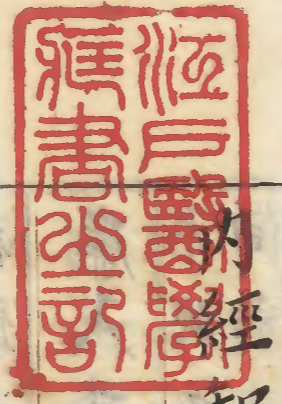 江戸醫學
藏書之記
內經知